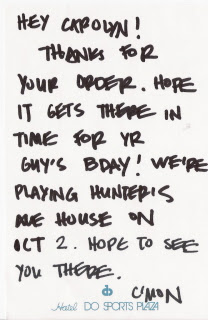 HEY CAROLYN!
THANKS FOR
YOUR ORDER. HOPE
IT GETS THERE IN
TIME FOR YR
GUY'S BDAY! WE'RE
PLAYING HUNTER'S
ALE HOUSE ON
OCT 2. HOPE TO SEE
YOU THERE.
C'MON
Hotel DO SPORTS PLAZA